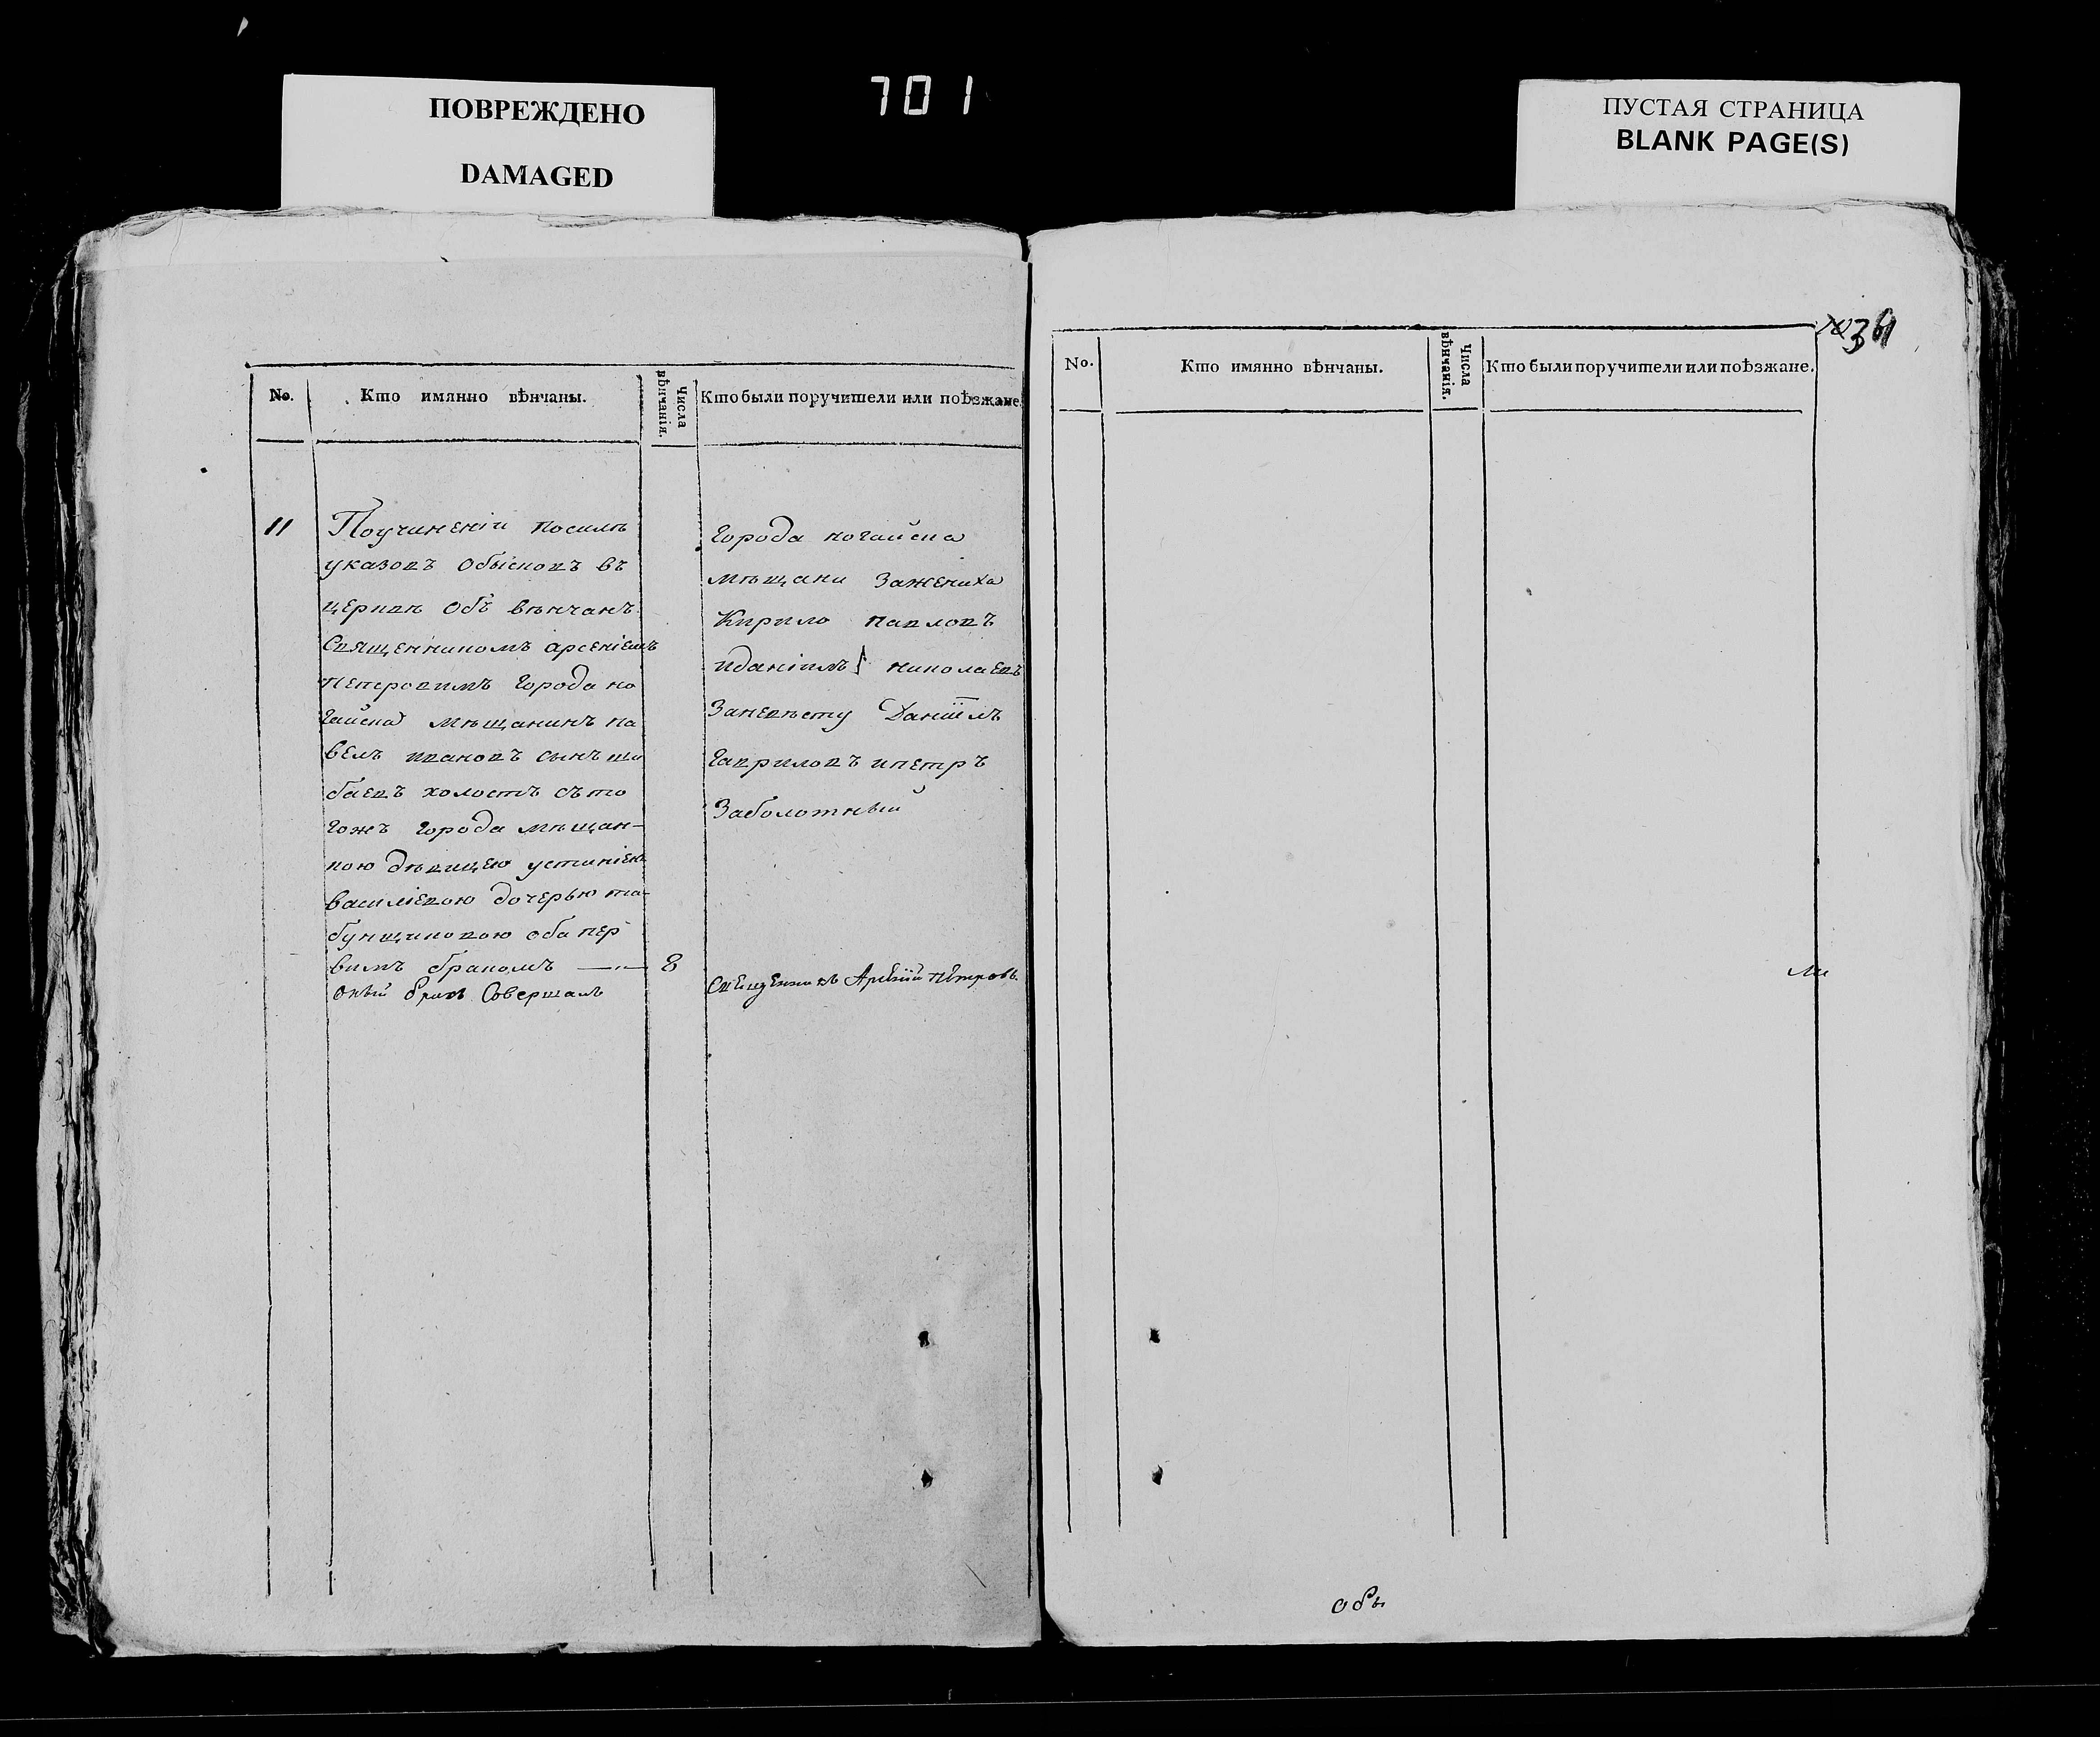 ПОВРЕЖДЕНО
DAMAGED
701
ПУСТАЯ СТРАНИЦА
BLANK PAGE(S)
No.
Кто имянно вѣнчаны.
Числа вѣнчанія.
Кто были поручители или поѣзжане.
11
Поучиненіи посилѣ
указовъ обысковъ въ
церквѣ объ вѣнчанъ
Священникомъ арсеніемъ
петровимъ города но
гайска мѣщанинъ па
велъ ивановъ сынъ ши
баевъ холостъ съ то
гожъ города мѣщан-
кою дѣвицею устиніею
василіевою дочерью та-
бунщиковою оба пер
вимъ бракомъ 8
оный бракъ Совершалъ
города ногайска
мѣщани зажениха
Кирило павловъ
иданіилъ николаевъ
Заневѣсту Даніилъ
гавриловъ ипетръ
Заболотный
Священникъ Арсѣній пѣтровъ
No.
Кто имянно вѣнчаны.
Числа вѣнчанія.
Кто были поручители или поѣзжане.
ли
объ